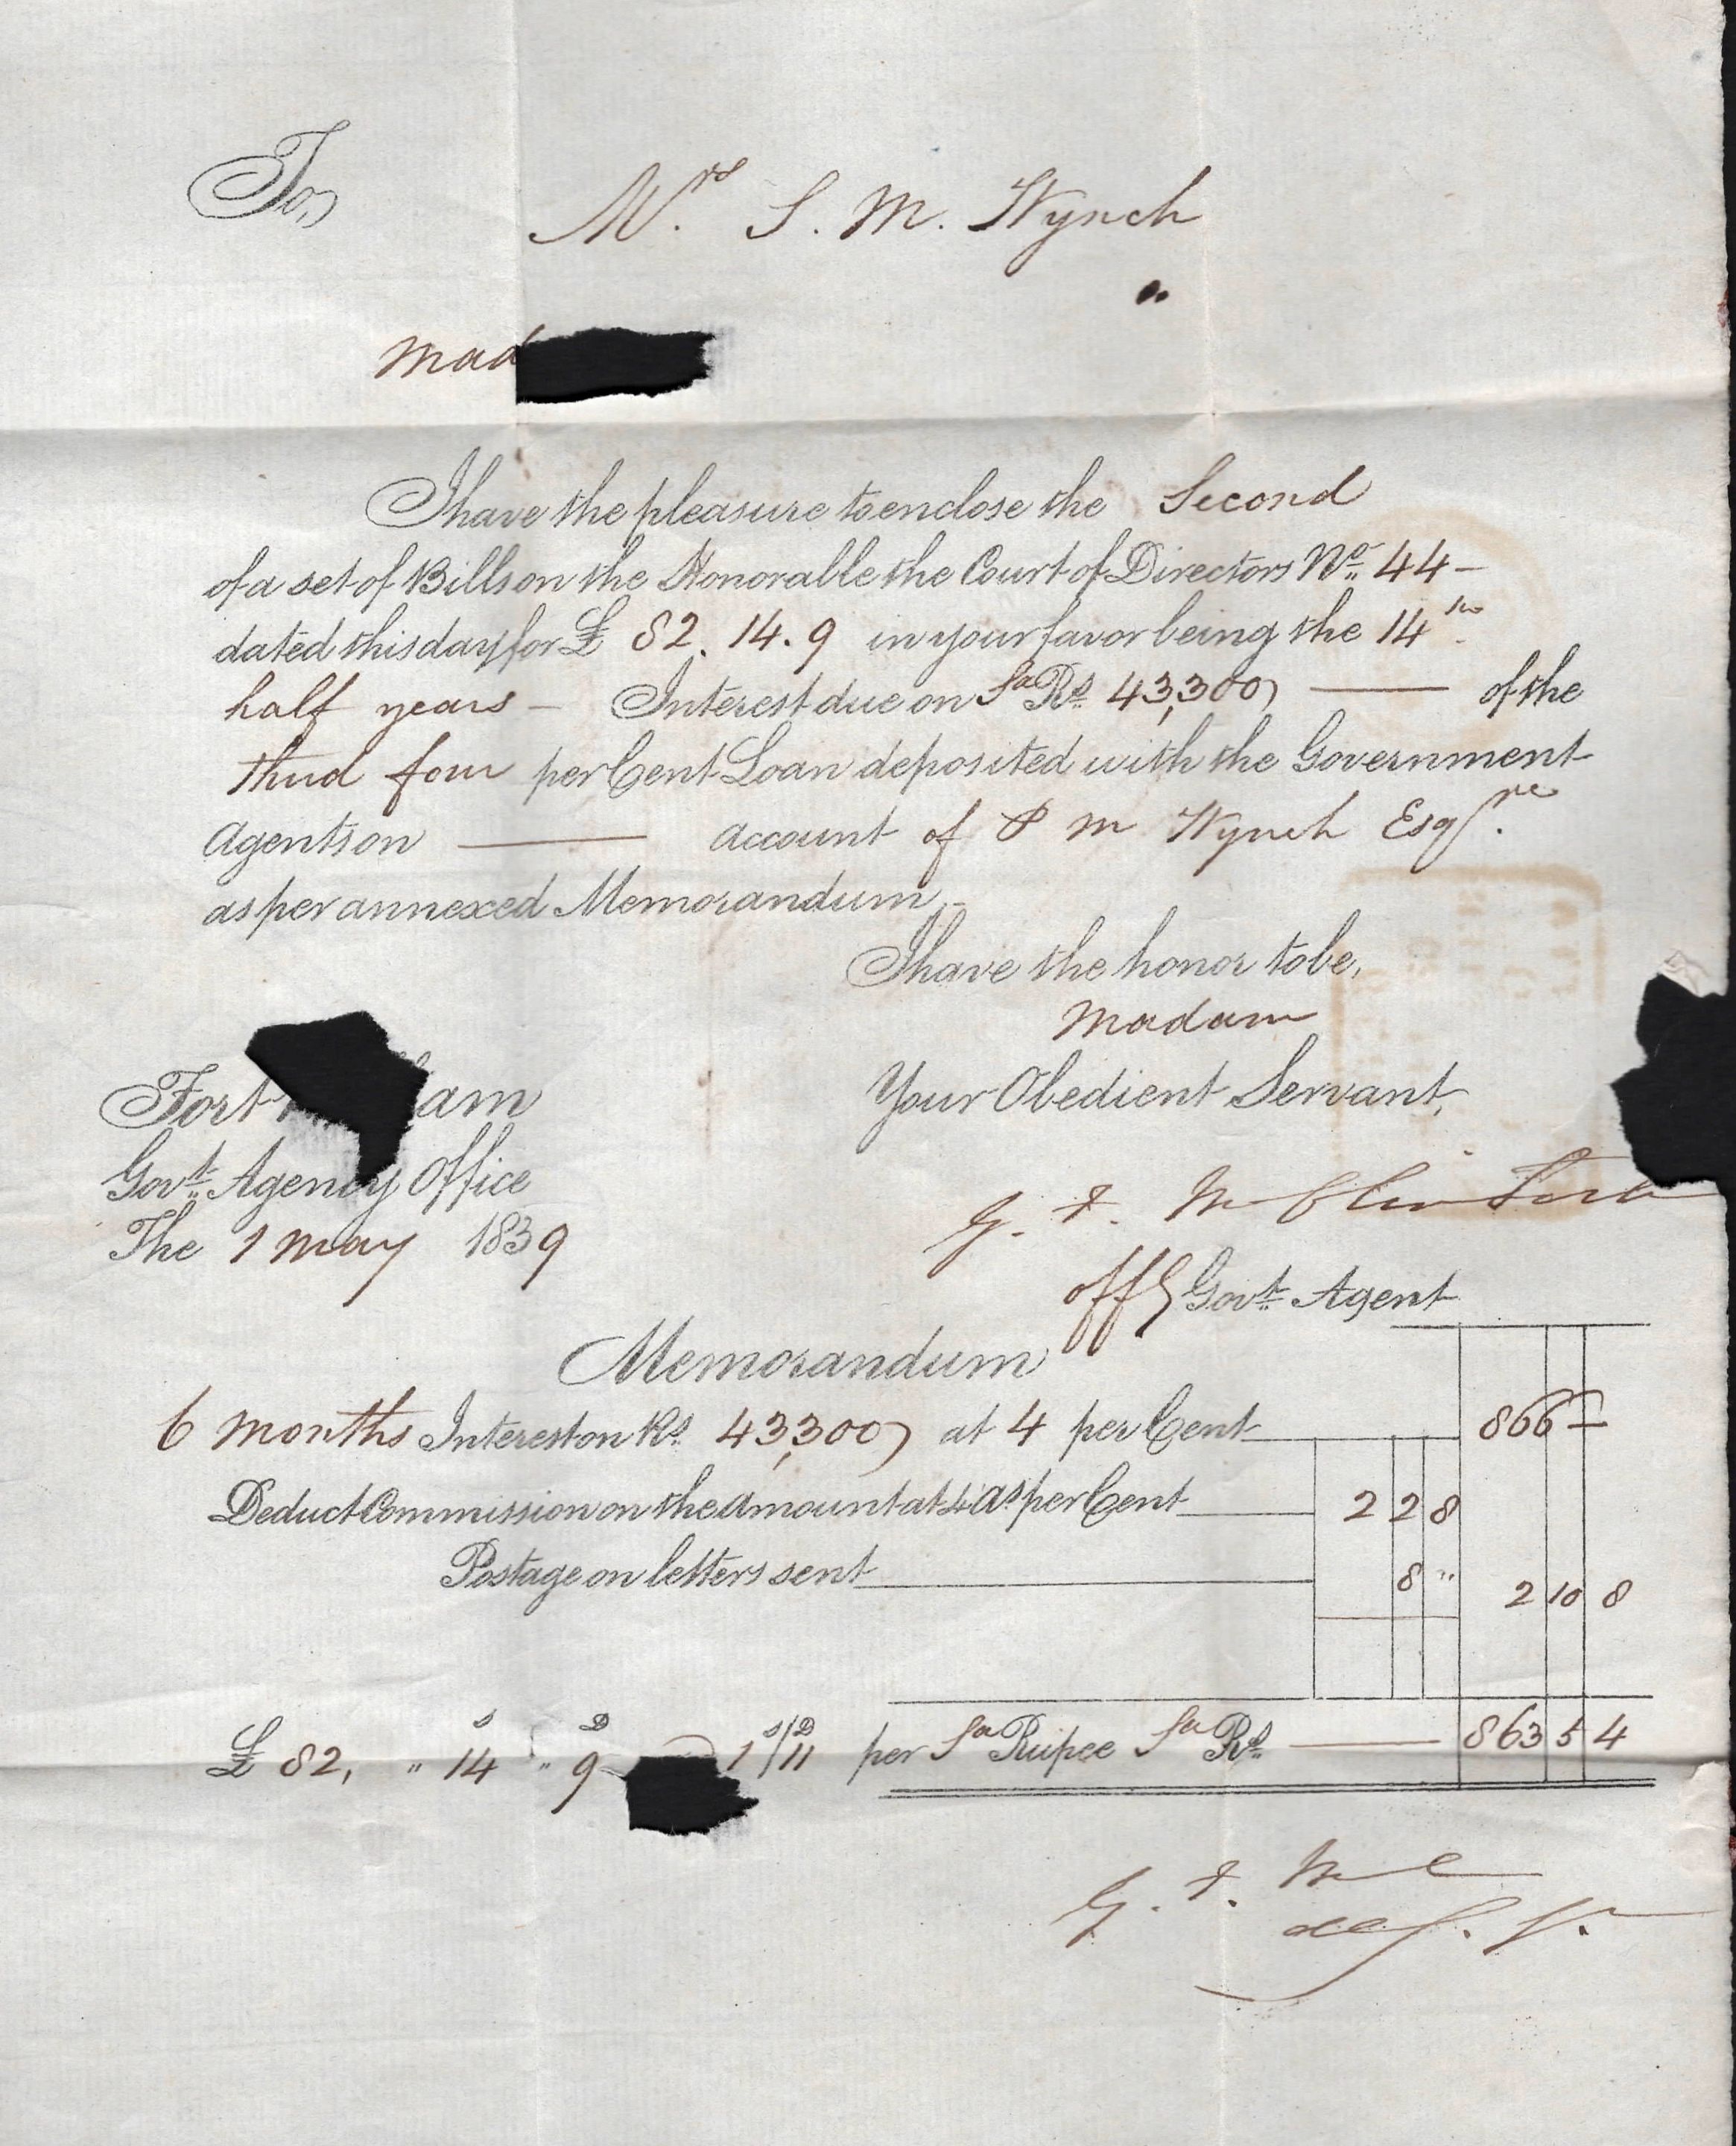 To,
Mrs. S. M. Wynch
Mad
I have the pleasure to enclose the Second
of a set of Bills on the Honorable the Court of Directors No. 44 -
dated this day for £ 82. 14. 9 in your favor being the 14th
half years - Interest due on Sa Rs. 43,300, — of the
third four per Cent Loan deposited with the Government
Agents on — account of P M Wynch Esqre.
as per annexed Memorandum -
I have the honor to be,
Madam
Your Obedient Servant,
Fort am
Govt. Agency Office
The 1 May 1839
G. F. McClintock
Offg Govt. Agent
Memorandum
6 Months Interest on Rs. 43,300, at 4 per Cent 866 -
Deduct Commission on the Amount at 4 As per Cent 2 2 8
Postage on letters sent 8 " 2 10 8
£ 82, " 14 s " 9 D 1 s/11 D per Sa Rupee Sa Rs. — 863 5 4
G. F. McC